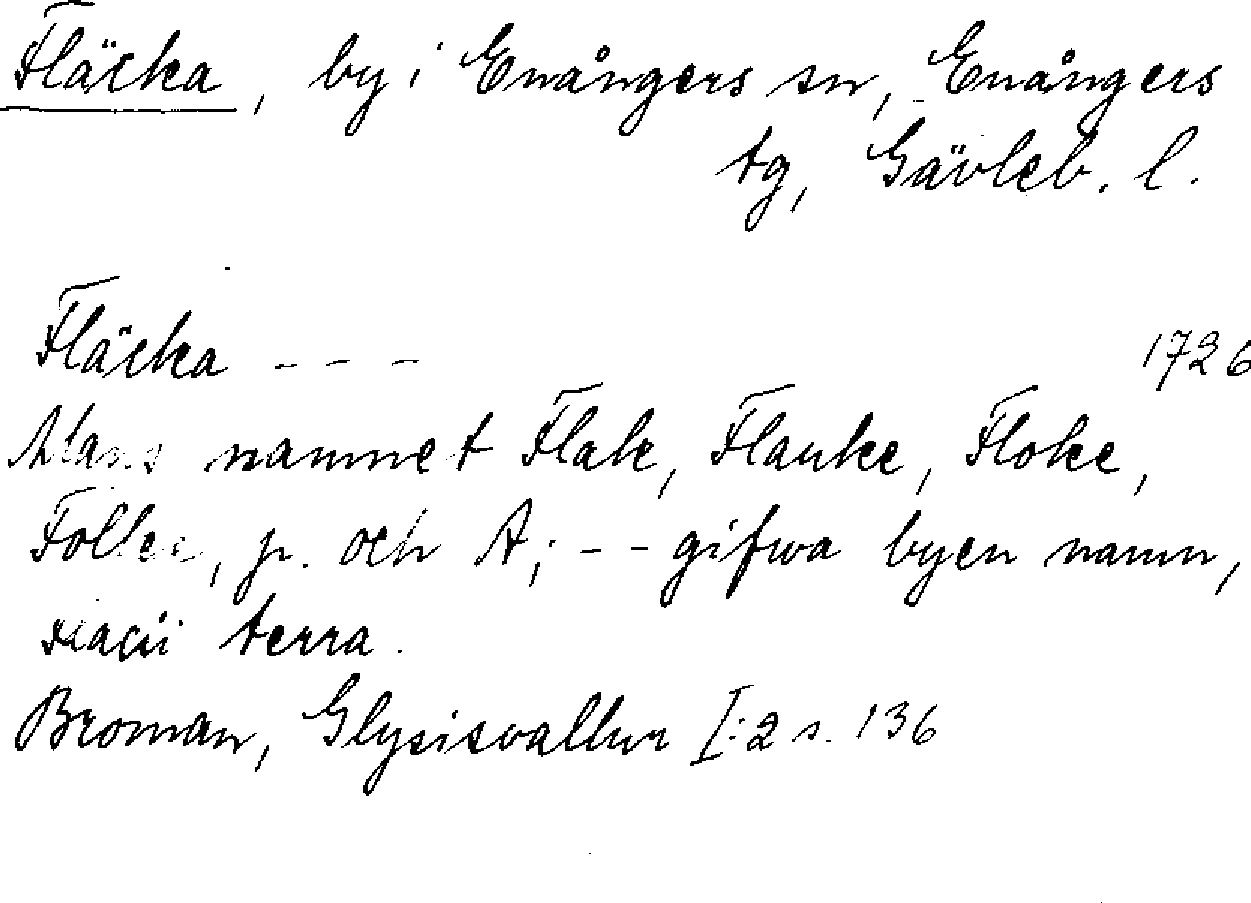 Fläcka, by i Enångers sn, Enångers
tg, Gävleb. l.
Fläcka - - - 1726
Mans namnet Flak, Flauke, Floke,
p. och A; - - gifwa byen namn,
terra.
Broman, Glysisvallur I:2 s. 136